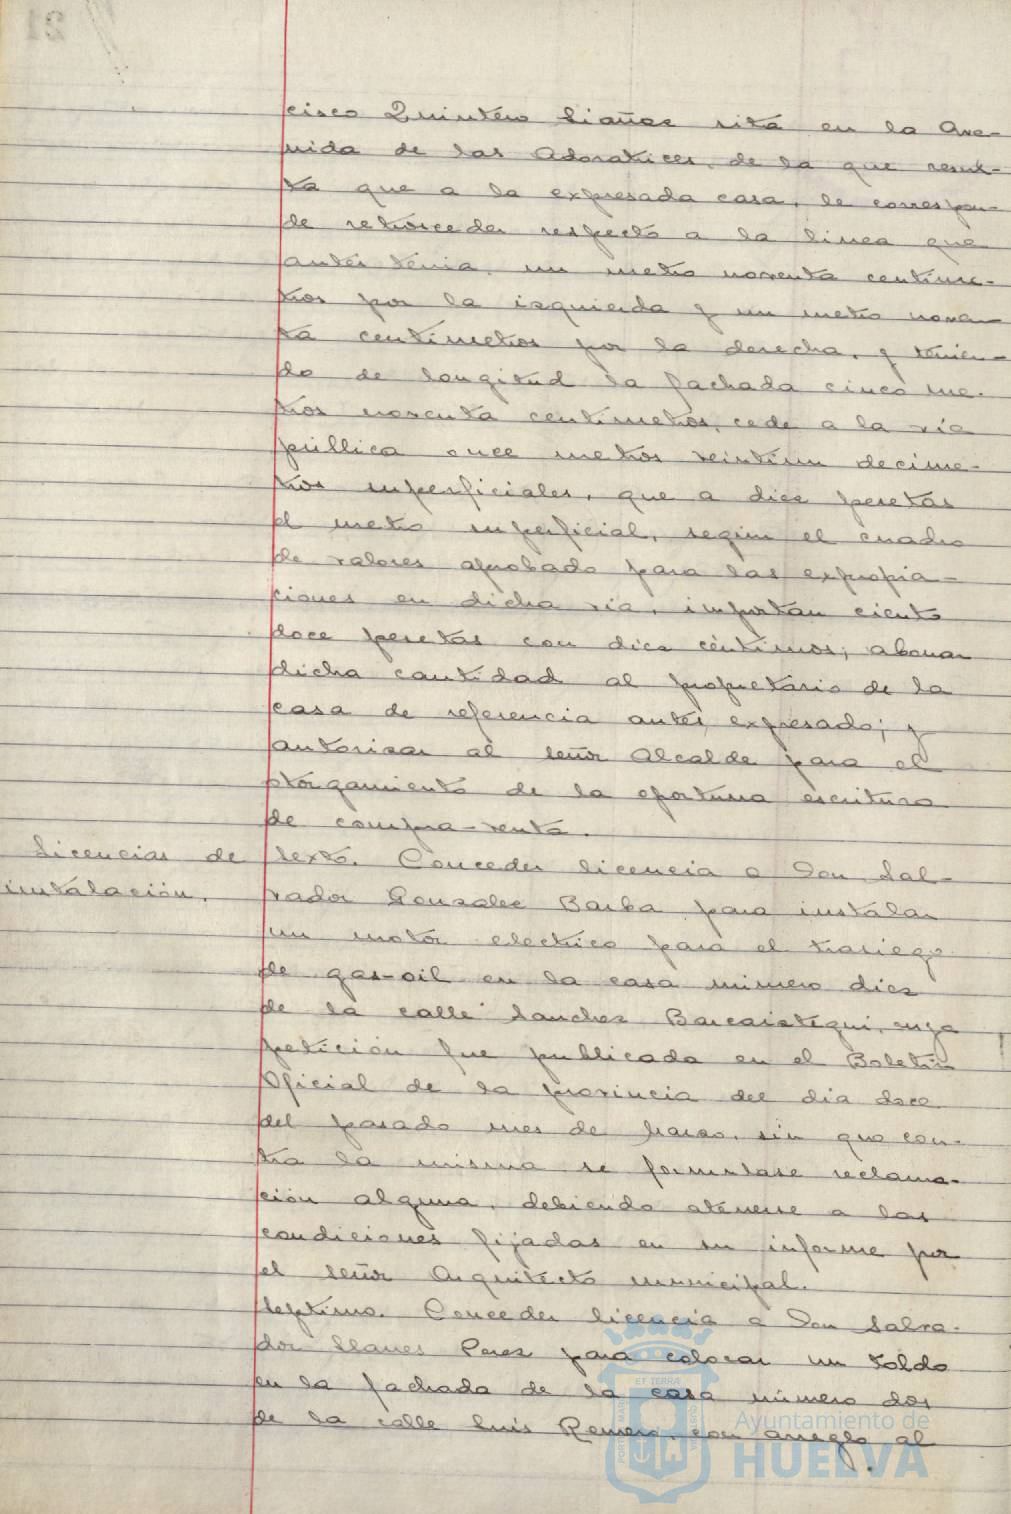 cisco Quintero Liañez sita en la Ave-
nida de las Adoratrices, de la que resul-
ta que a la expresada casa, le correspon-
de retroceder respecto a la linea que
antes tenia, un metro noventa centime-
tros por la izquierda y un metro noven-
ta centimetros por la derecha, y tenien-
do de longitud la fachada cinco me-
tros noventa centimetros, cede a la via
pública once metros veintiun decime-
tros superficiales, que a diez pesetas
el metro superficial, según el cuadro
de valores aprobado para las expropia-
ciones en dicha via, importan ciento
doce pesetas con diez céntimos; abonar
dicha cantidad al propietario de la
casa de referencia antes expresado; y
autorizar al señor Alcalde para el
otorgamiento de la oportuna escritura
de compra-venta.
Licencias de
instalación.
Sexto. Conceder licencia a Don Sal-
vador Gonzalez Barba para instalar
un motor electrico para el trasiego
de gas-oil en la casa número diez
de la calle Sanchez Barcaiztegui, cuya
petición fue publicada en el Boletin
Oficial de la provincia del dia doce
del pasado mes de Marzo, sin que con-
tra la misma se formulase reclama-
ción alguna, debiendo atenerse a las
condiciones fijadas en su informe por
el señor Arquitecto municipal.
Septimo. Conceder licencia a Don Salva-
dor Llanes Perez para colocar un toldo
en la fachada de la casa número dos
de la calle Luis Romero, con arreglo al
PORTUS MARIS ET TERRAE CUSTODIA
Ayuntamiento de
HUELVA
21